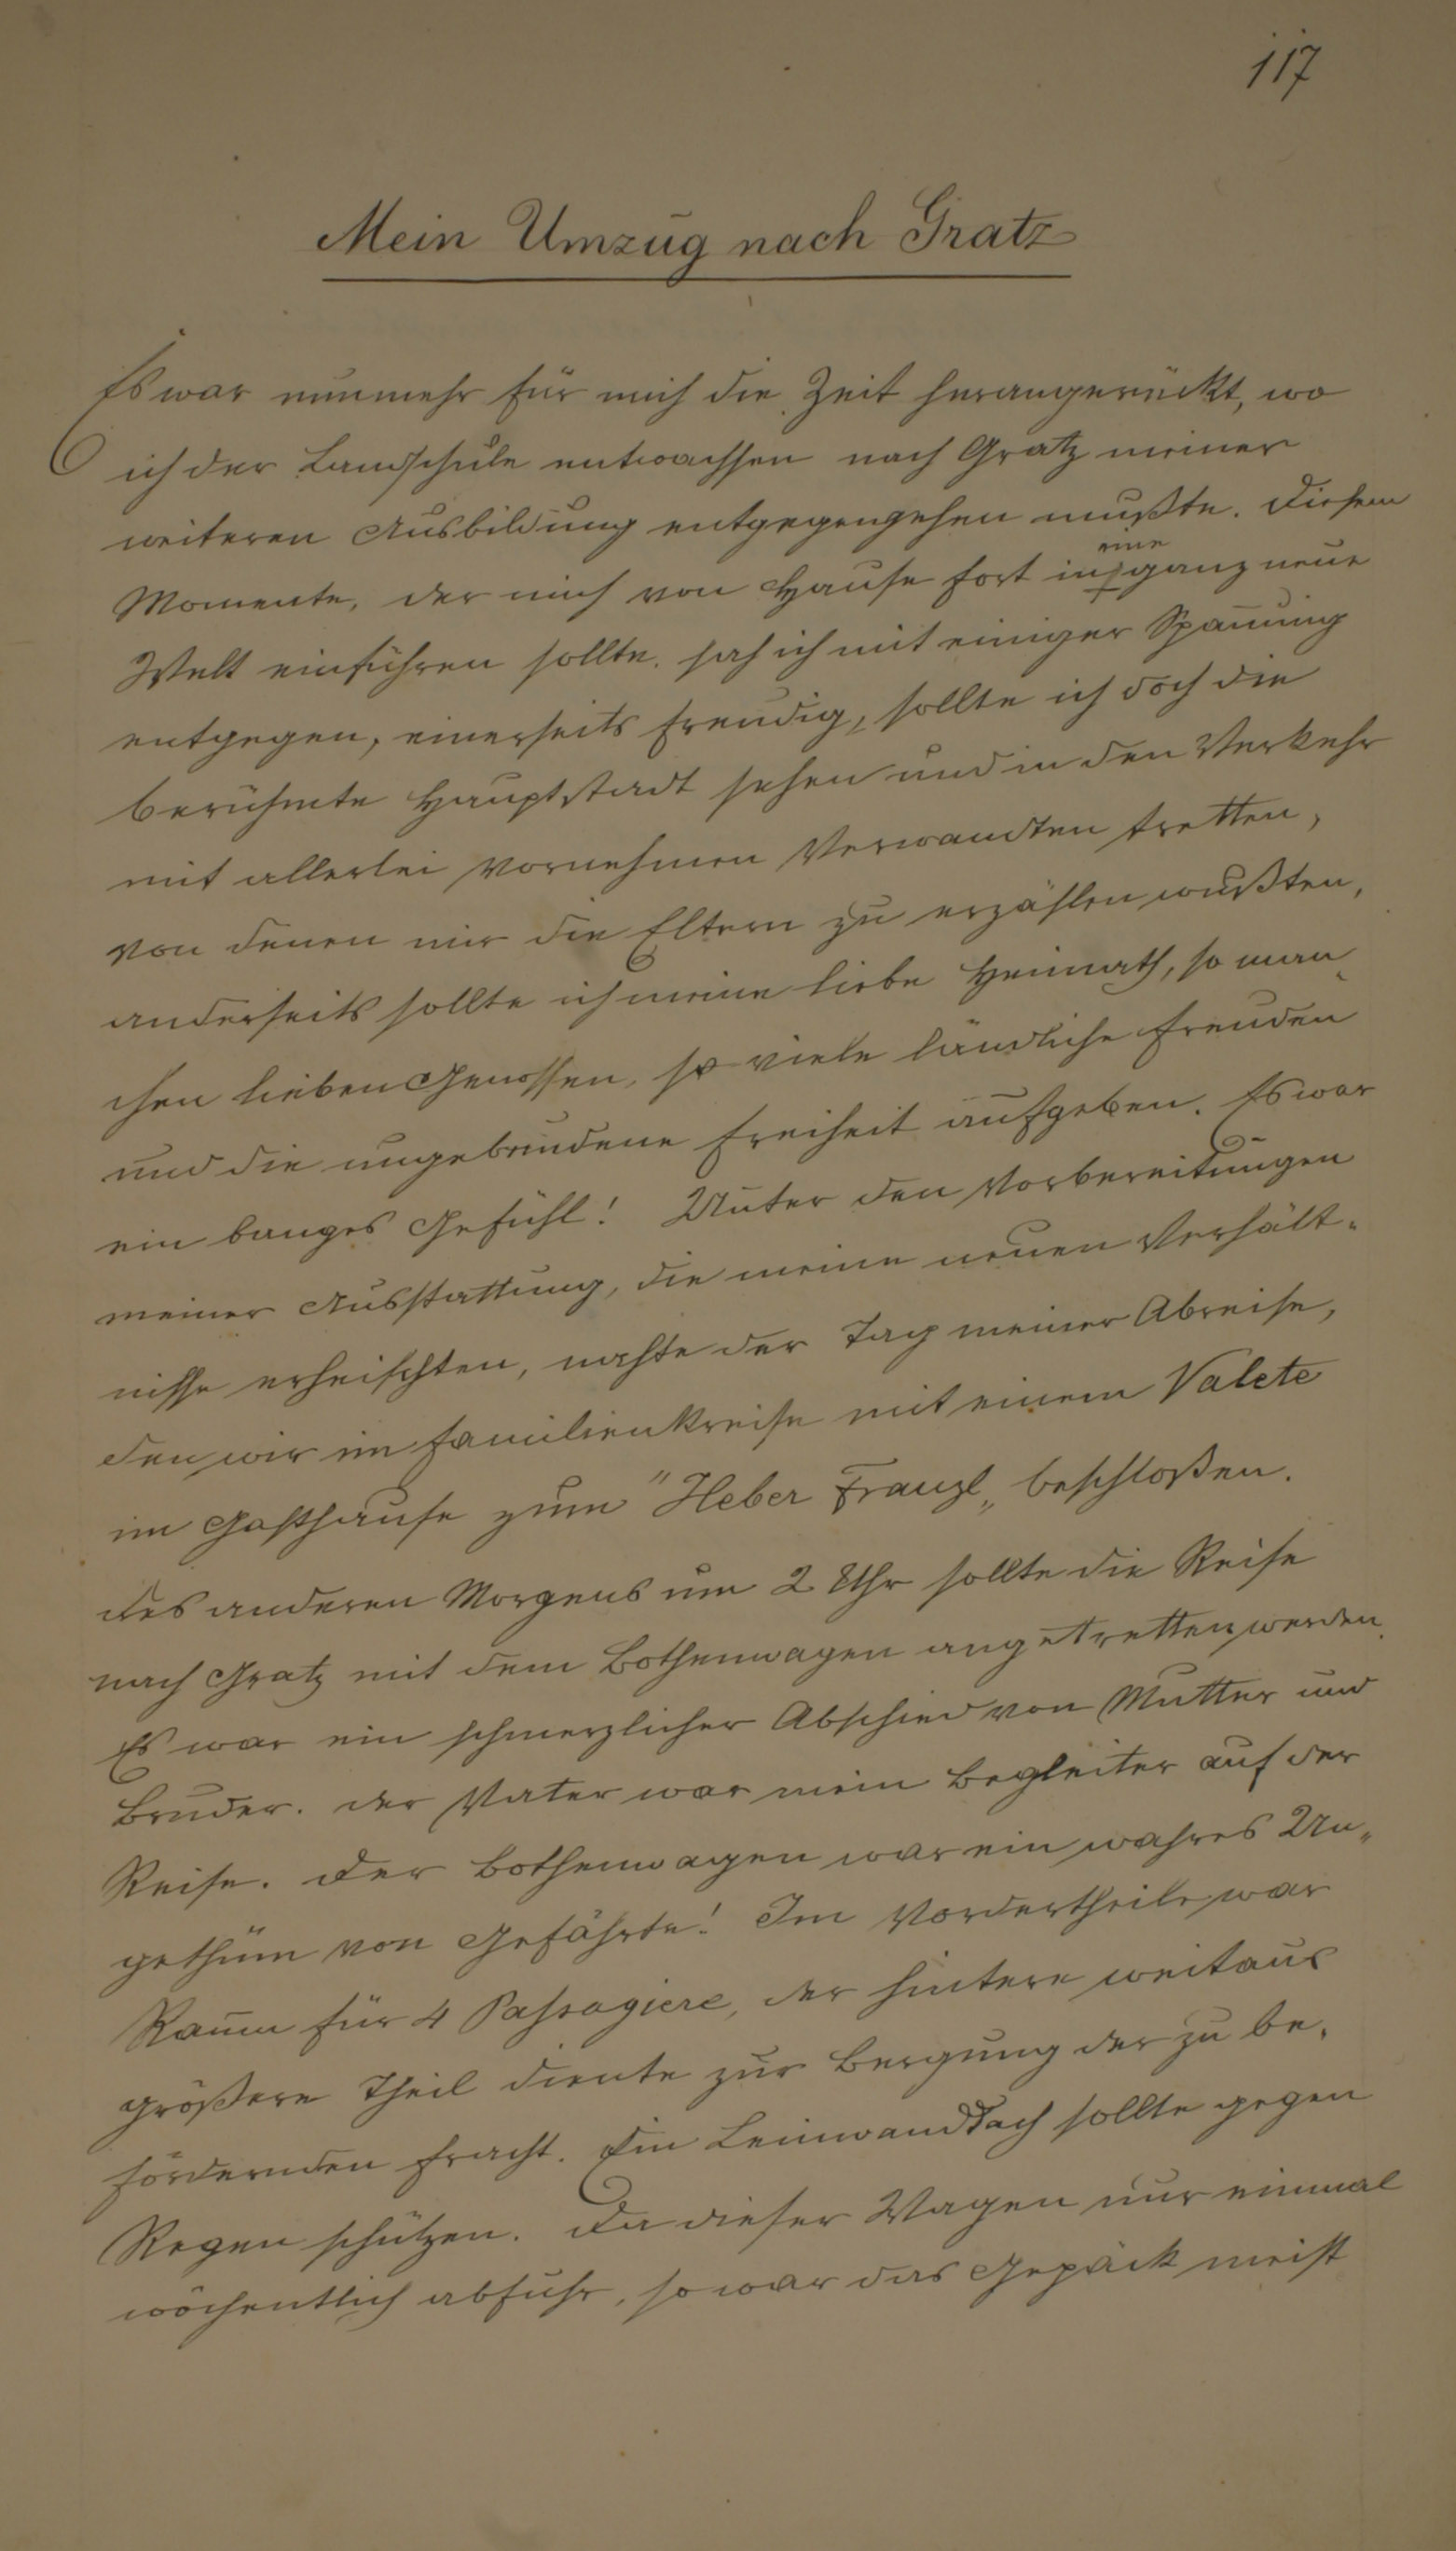 117
Mein Umzug nach Gratz
Es war nunmehr für mich die Zeit herangerückt, wo
ich der Landschule entwachsen nach Gratz meiner
weiteren Ausbildung entgegengehen mußte. Diesem
eine
Momente, der mich von Hause fort in ganz neue
Welt einführen sollte, sah ich mit einiger Spannung
entgegen, einerseits freudig, sollte ich doch die
berühmte Hauptstadt sehen und in den Verkehr
mit allerlei vornehmen Verwandten tretten,
von denen mir die Eltern zu erzählen wußten,
anderseits sollte ich meine liebe Heimath, so man¬
chen lieben Genossen, so viele ländliche Freuden
und die ungebundene Freiheit aufgeben. Es war
ein banges Gefühl! Unter den Vorbereitungen
meiner Ausstattung, die meine neuen Verhält-
nisse erheischten, nahte der Tag meiner Abreise,
den wir im Familienkreise mit einem Valete
im Gasthause zum "Heber Franzl„ beschloßen.
Des anderen Morgens um 2 Uhr sollte die Reise
nach Gratz mit dem Bothenwagen angetretten werden.
Es war ein schmerzlicher Abschied von Mutter und
Bruder. Der Vater war mein Begleiter auf der
Reise. Der Bothenwagen war ein wahres Un„
gethüm von Gefährte! Im Vordertheile war
Raum für 4 Passagiere, der hintere weitaus
größere Theil diente zur Bergung der zu be-
fördernden Fracht. Ein Leinwanddach sollte gegen
Regen schützen. Da dieser Wagen nur einmal
wöchentlich abfuhr, so war das Gepäck meist